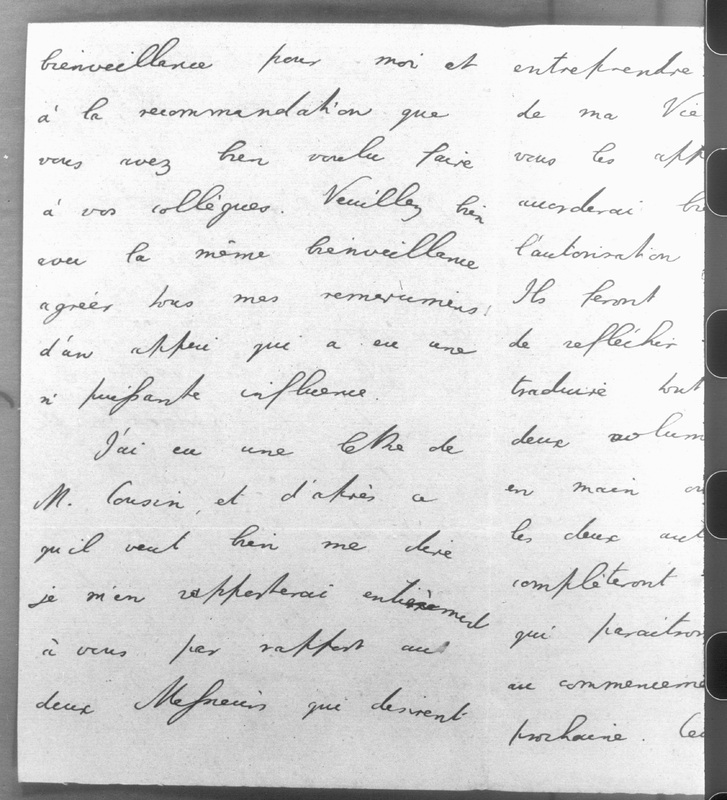 bienveillance pour moi et
à la recommandation que
vous avez bien voulu faire
à vos collègues. Veuillez bien
avec la même bienveillance
agréer tous mes remerciments
d'un appui qui a eu une
si puissante influence.
J'ai eu une lettre de
M. Cousin, et d'après ce
qu'il veut bien me dire
je m'en rapporterai entièrement
à vous par rapport aux
deux Messieurs qui desirent
entreprendre
de ma Vie
vous les app
accorderai bi
l'autorisation
Ils feront
de reflèchir
traduire tout
deux volum
en main
les deux aut
complèteront
qui paraitron
au commenceme
prochaine.